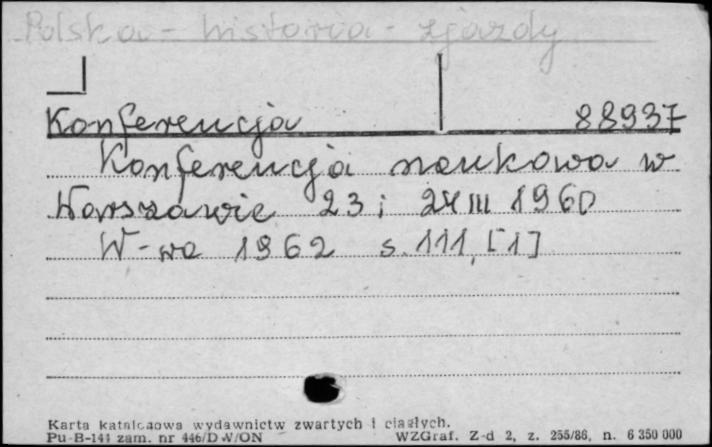 Polska - historia - zjazdy
Konferencja 88937
Konferencja naukowa w
Warszawie 23 i 24 III 1960
W-wa 1962 s. 111, [1]
Karta katalogowa wydawnictw zwartych i ciągłych.
Pu-B-141 zam. nr 446/D W/ON WZGraf. Z-d 2, z. 255/86, n. 6 350 000